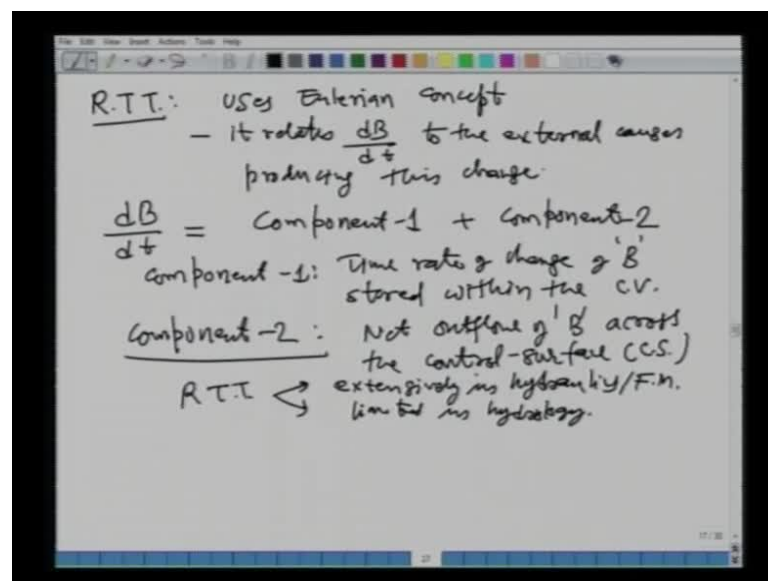 File Edit View Insert Actions Tools Help
R.T.T.: Uses Eulerian Concept
- It relates dB/dt to the external causes
producing this change.
dB/dt = Component-1 + Component-2
Component-1: Time rate of change of 'B'
stored within the C.V.
Component-2: Net outflow of 'B' across
the control-surface (C.S.)
R T.T extensively in hydraulics/F.M.
limited in hydrology.
17/30